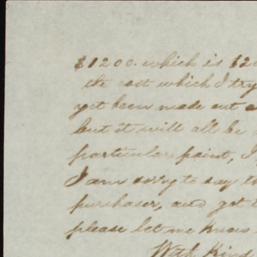 $1200. which is $20
the cost which I try
yet been made out a
but it will all be
particular point, I
I am sorry to say to
purchaser, and got t
please let me know
With Kind